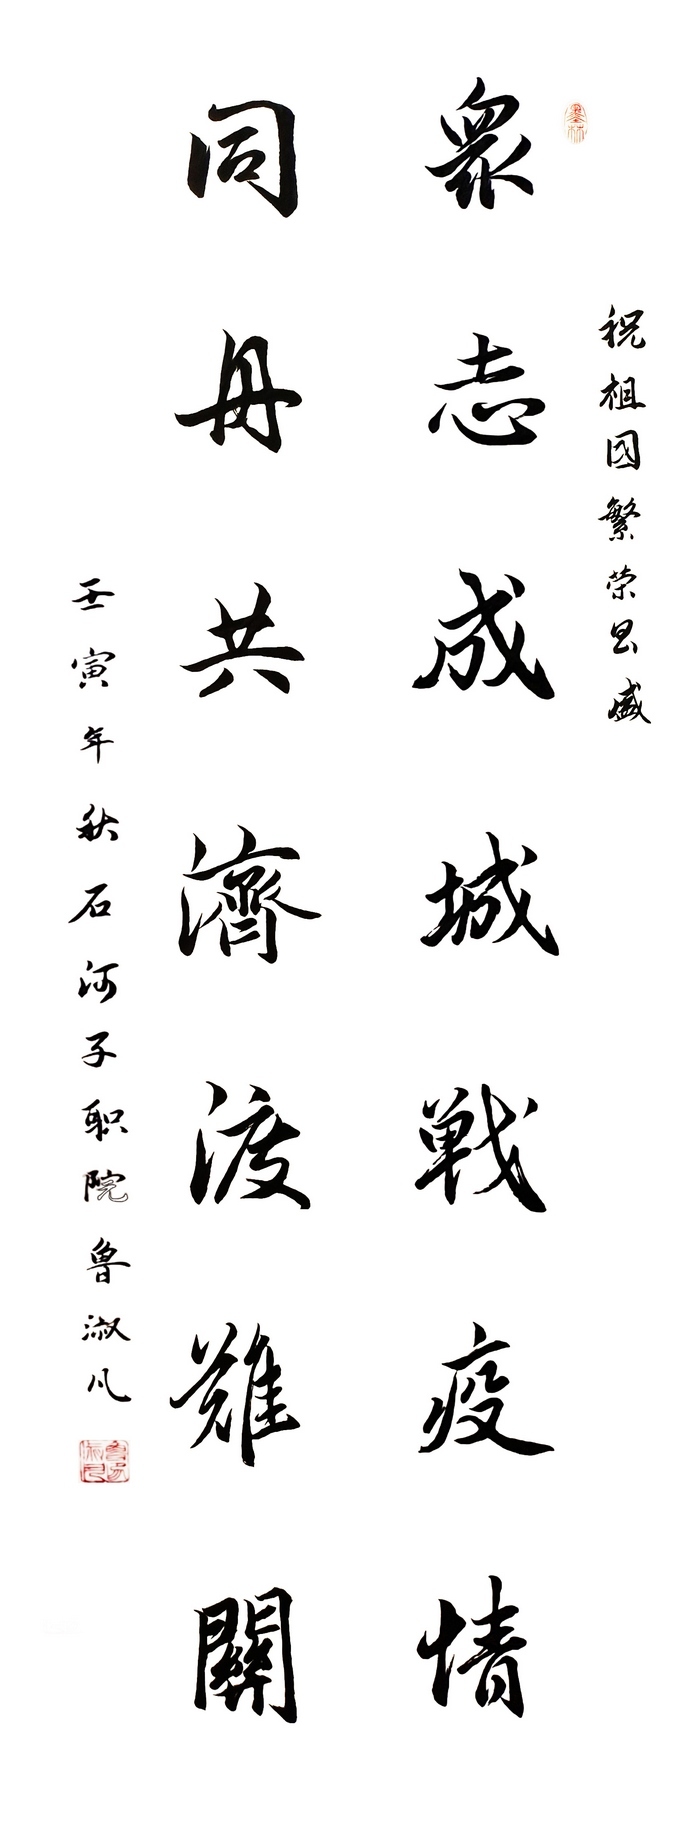 祝祖國繁荣昌盛
衆志成城戦疫情
同舟共濟渡難關
壬寅年秋石河子职院魯淑凡